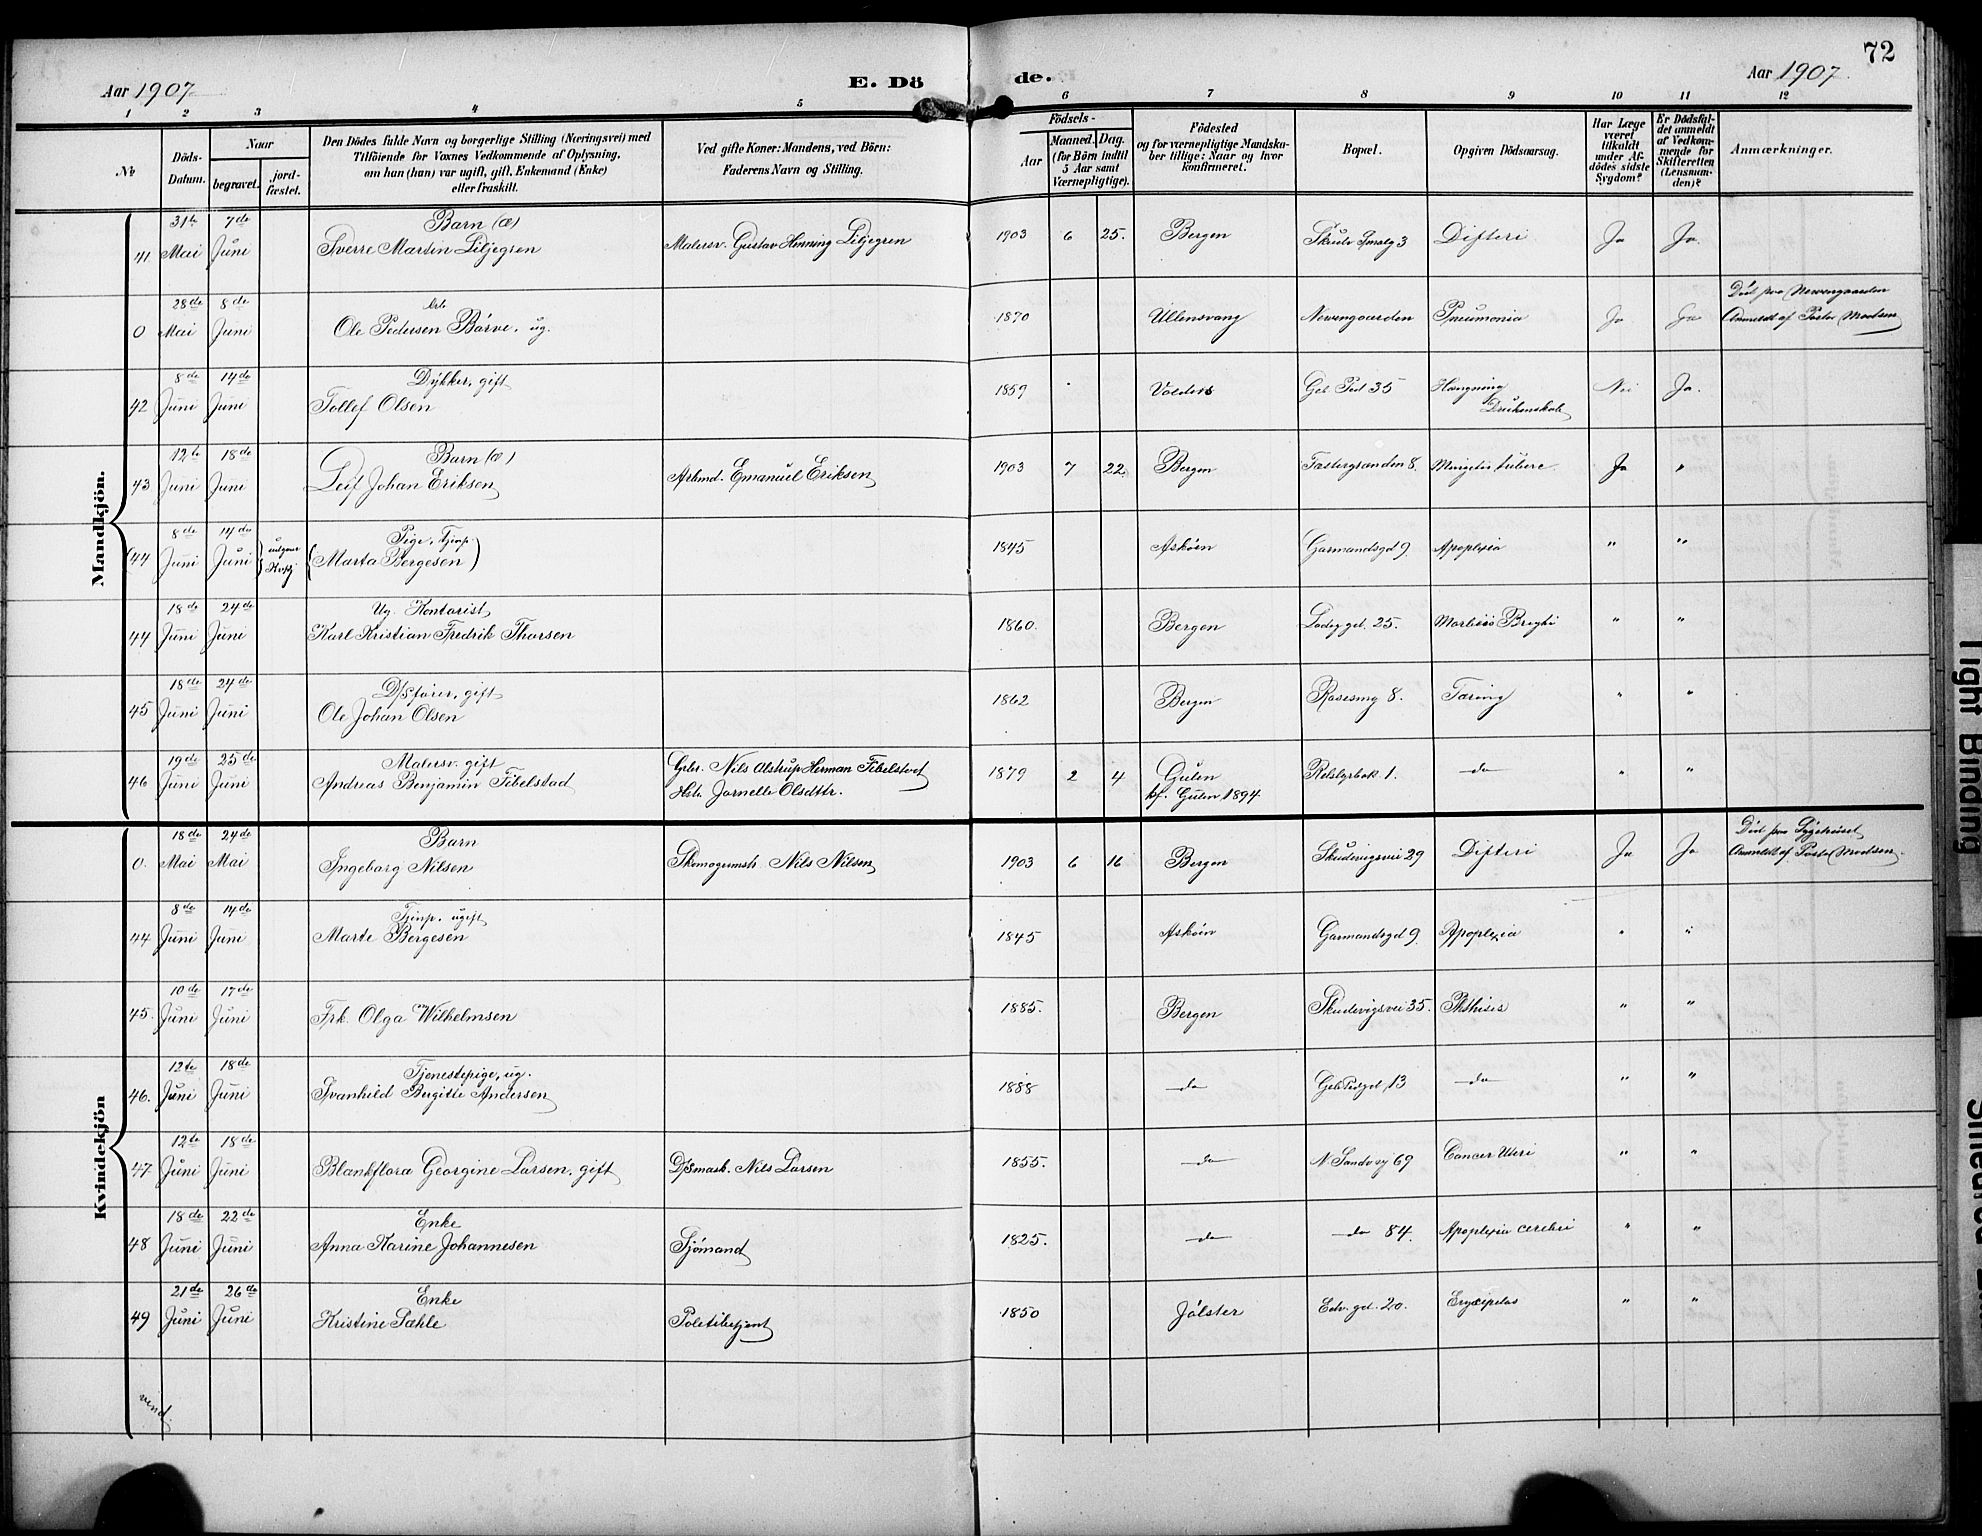 72
Aar 1907
E. Dö de.
Aar 1907
1 2 3 4 5 6 7 8 9 10 11 12
No
Döds-Datum.
Naar
begravet.
jord-fæstet.
Den Dödes fulde Navn og borgerlige Stilling (Næringsvei) med
Tilföiende for Voxnes Vedkommende af Oplysning,
om han (hun) var ugift, gift, Enkemand (Enke)
eller fraskilt.
Ved gifte Koner: Mandens, ved Börn:
Faderens Navn og Stilling.
Födsels-
Aar
Maaned. Dag.
(for Börn indtil
5 Aar samt
Værnepligtige).
Födested
og for værnepligtige Mandska-
ber tillige: Naar og hvor
konfirmeret.
Bopæl.
Opgiven Dödsaarsag.
Har Læge
været
tilkaldt
under Af-
dödes sidste
Sygdom?
Er Dödsfal-
det anmeldt
af Vedkom-
mende for
Skifteretten
(Lensman-
den)?
Anmærkninger.
Mandkjön.
41 31te Mai 7de Juni Barn (æ)
Sverre Martin Liljegren Malersv. Gustav Henning Liljegren 1903 6 25. Bergen 3 Difteri Ja Ja.
0 28de Mai 8de Juni Arb
Ole Pedersen Börve, ug. 1870 Ullensvang Nevengaarden Pneumonia Ja Ja Död paa Nevengaarden
Anmeldt af Pastor Madsen
42 8de Juni 14de Juni Dykker, gift
Tollef Olsen 1859 Valders 35 Hængning
Drukenskab Nei Ja.
43 12te Juni 18de Juni Barn (æ)
Leif Johan Eriksen Arbmd. Emanuel Eriksen 1903 7 22. Bergen 8. tuberc. Ja "
(44 8de Juni 14de Juni udgaar Pige, Tjnp.
(Marta Bergesen) 1845 Asköen Garmandsgd 9 Apoplexia " "
44 18de Juni 24de Juni Ug. Kontorist
Karl Kristian Fredrik Thorsen 1860. Bergen 25. Morbus Brighti " "
45 18de Juni 24de Juni D/sförer, gift
Ole Johan Olsen 1862 Bergen 8. Tæring " "
46 19de Juni 25de Juni Malersv. gift
Andreas Benjamin Tibelstad Gbr. Nils Alstrup Herman Tibelstad
Hst. Jornelle Olsdttr. 1879 2 4 Gulen
kf. Gulen 1894 1. do " "
Kvindekjön
0. 18de Mai 24de Mai Barn
Ingeborg Nilsen Skomagermstr. Nils Nilsen 1903 6 16 Bergen Skudevigsvei 29 Difteri Ja Ja Död paa Sygehuset
Anmeldt af Pastor Madsen.
44 8de Juni 14de Juni Tjnp. ugift
Marte Bergesen 1845 Asköen Garmandsgd 9. Apoplexia " "
45. 10de Juni 17de Juni Frk. Olga Wilhelmsen 1885. Bergen Skudevigsvei 35. Phthisis " "
46. 12te Juni 18de Juni Tjenestepige, ug.
Svanhild Bergitte Andersen 1888 do 13 do " "
47. 12te Juni 18de Juni Blankflora Georgine Larsen, gift D/smask. Nils Larsen 1855. do N. Sandvg 69 Cancer Uteri " "
48 18de Juni 22de Juni Enke
Anna Karine Johannesen Sjömand 1825. do do 84. Apoplexia cerebri " "
49 21de Juni 26de Juni Enke
Kristine Sæhle Politibetjent 1850 Jölster Edv. gd. 20. Erysipelas " "
vend.
Tight Binding